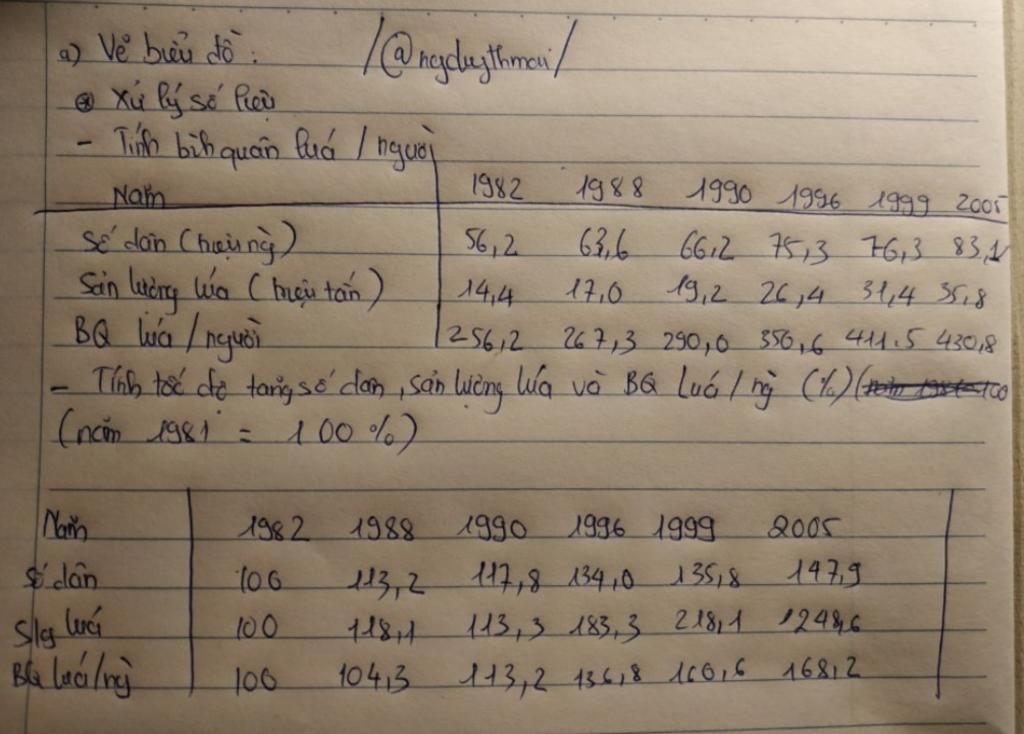 a) Vẽ biểu đồ: /@ngduythmai/
⊛ Xử lý số liệu
- Tính bìh quân luá / người
Năm 1982 1988 1990 1996 1999 2005
Số dân (triệu ng) 56,2 63,6 66,2 75,3 76,3 83,1
Sản lượng lúa (triệu tấn) 14,4 17,0 19,2 26,4 31,4 35,8
BQ lúa / người 256,2 267,3 290,0 350,6 411.5 430,8
- Tính tốc độ tăng số dân, sản lượng lúa và BQ luá / ng (%) (
(năm 1981 = 100 %)
Năm 1982 1988 1990 1996 1999 2005
Số dân 100 113,2 117,8 134,0 135,8 147,9
S/lg luá 100 118,1 113,3 183,3 218,1 248,6
BQ luá/ng 100 104,3 113,2 136,8 160,6 168,2